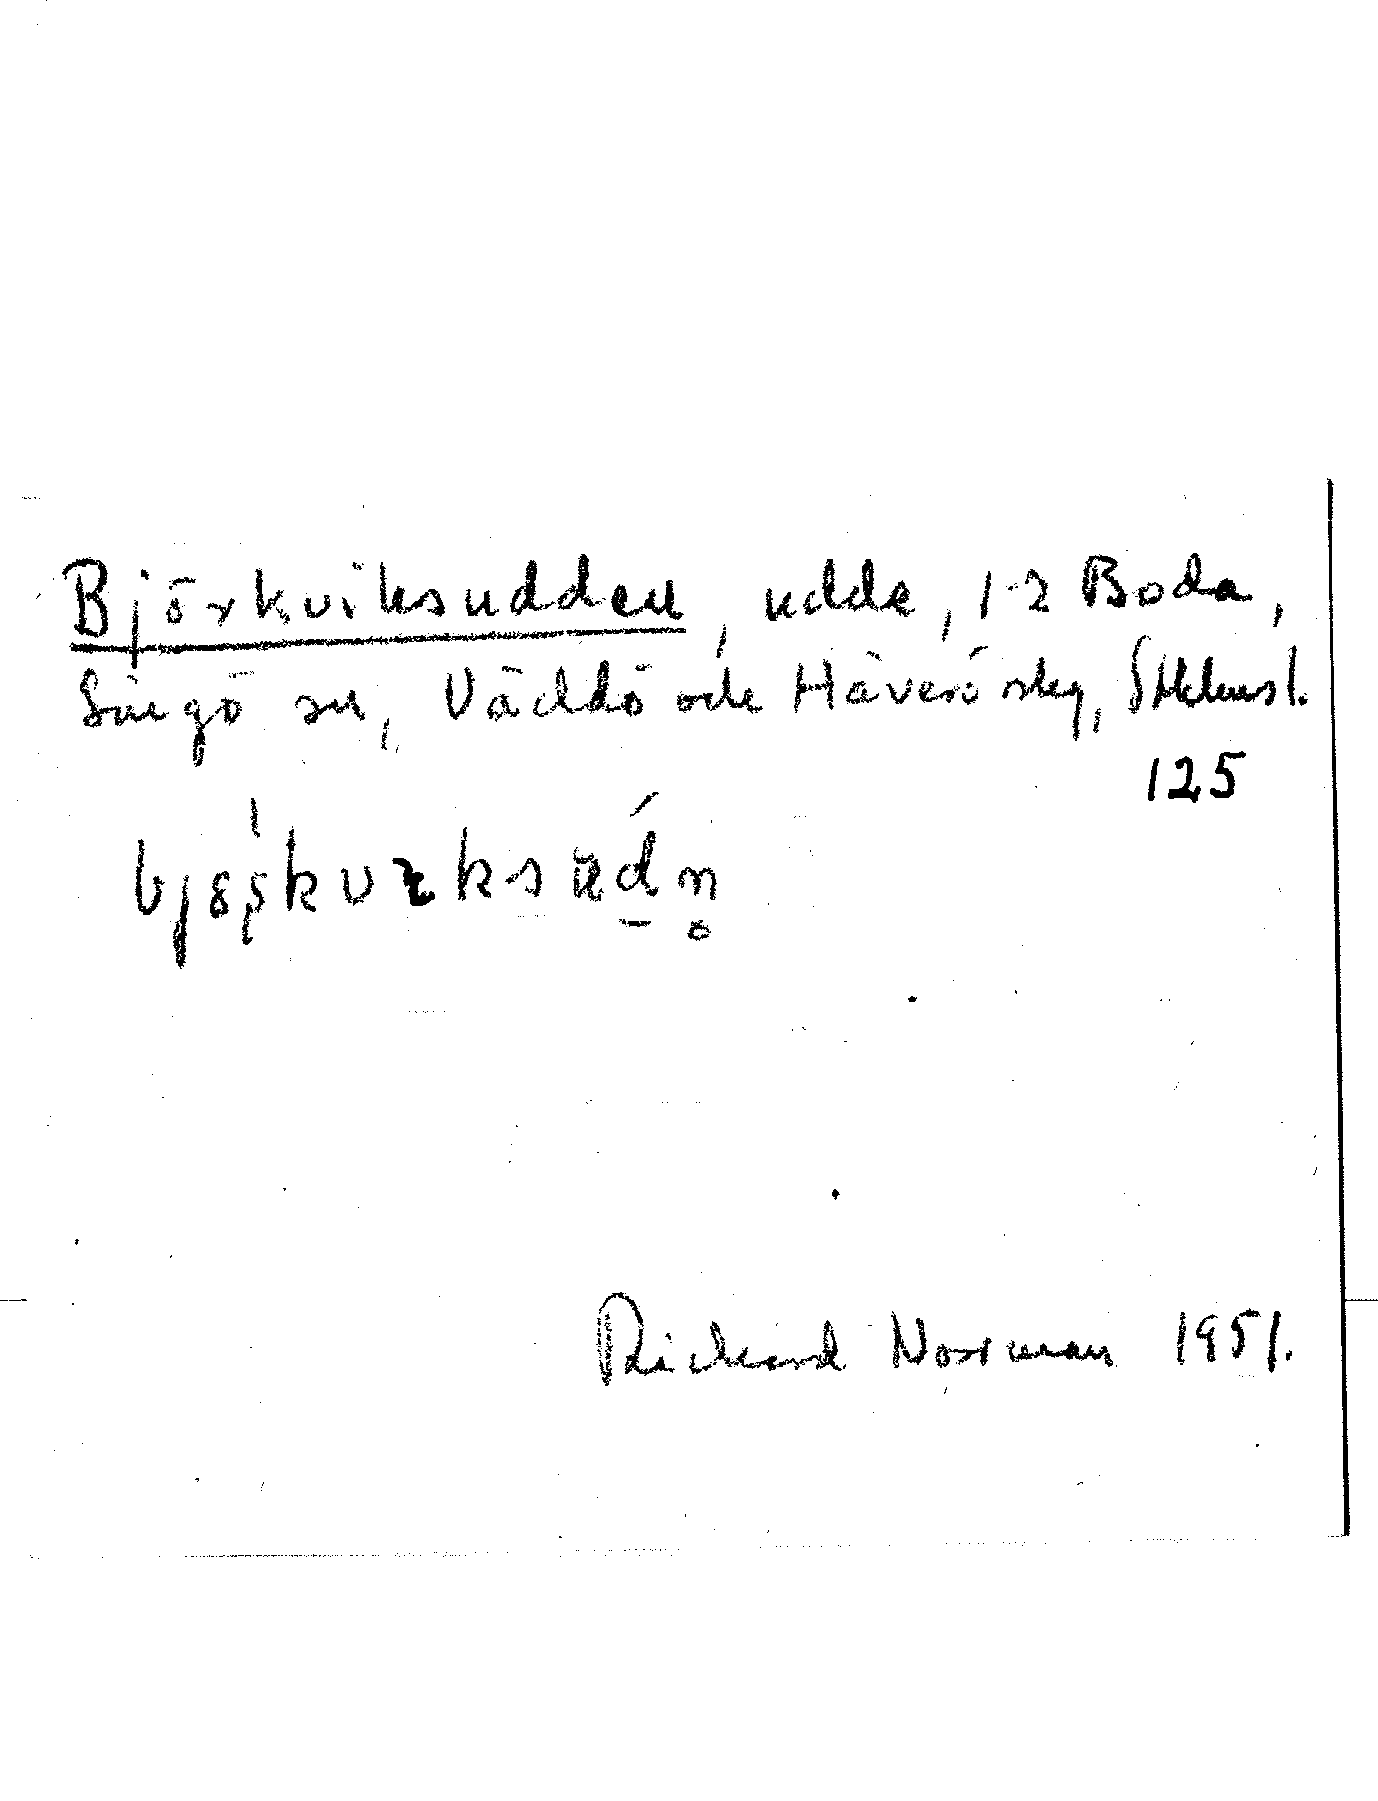 Björkviksudden, udde, 1-2 Boda,
Singö sn, Väddö och Häverö skg, Sthlms l.
125
Richard Norrman 1951.